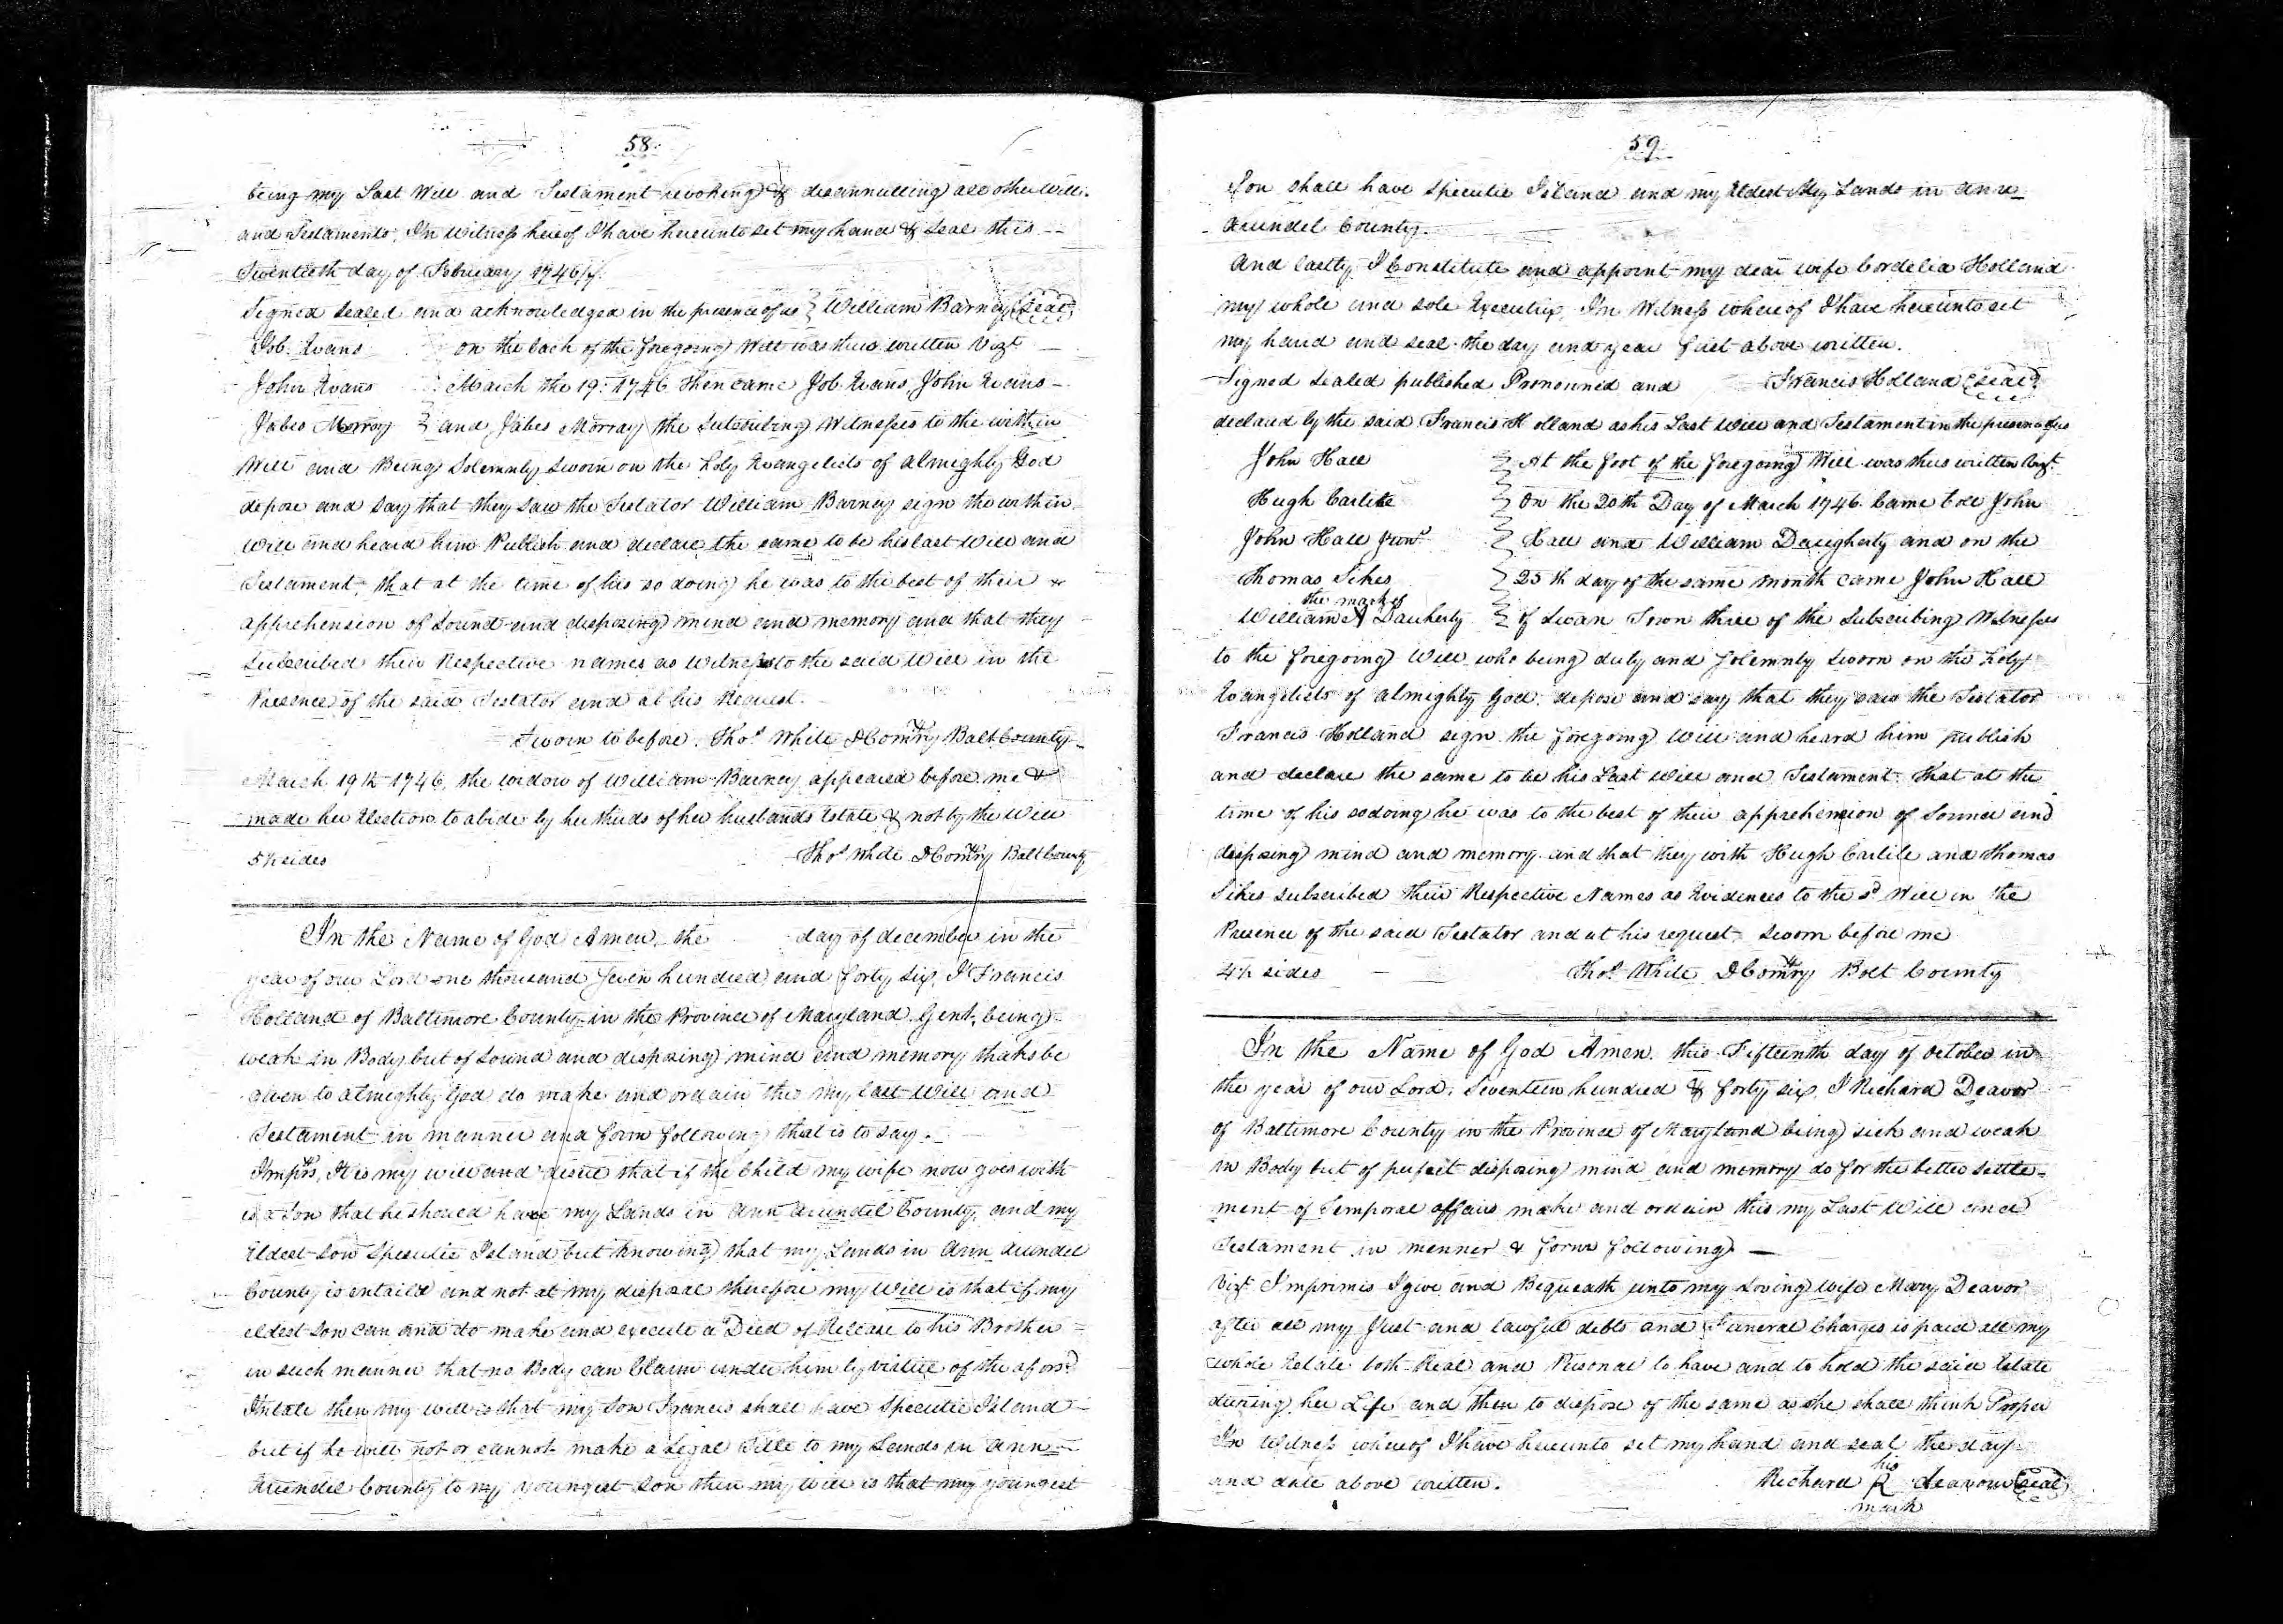 58
being my Last Will and Testament revoking & disannulling all other Wills
and Testaments, In Witness hereof I have hereunto set my hand & Seal this
Twentieth day of February 1746/7.
Signed Sealed and acknowledged in the presence of us William Barney (Seal)
Job. Evans on the back of the foregoing Will was thus written Vizt
John Evans March the 19: 1746 then came Job Evans, John Evans
Jabes Morray and Jabes Morray the Subscribing Witnesses to the within
Will and Being Solemnly Sworn on the holy Evangelists of almighty God
depose and Say that they saw the Testator William Barney sign the within
Will and heard him Publish and declare the same to be his last Will and
Testament, that at the time of his so doing he was to the best of their
apprehension of Sound and disposing mind and memory and that they
Subscribed their Respective names as Witnesses to the said Will in the
Presence of the said Testator and at his Request.
Sworn to before. Thos White DComry Balt County
March 19th 1746, the widow of William Barney appeared before me &
made her Election to abide by her thirds of her husbands Estate & not by the Will
5½ sides Thos White DComry Balt County
In the Name of God Amen, the day of december in the
year of our Lord one thousand Seven hundred and forty Six, I Francis
Holland of Baltimore County in the Province of Maryland Gent, being
weak in Body but of Sound and disposing mind and memory thanks be
given to almighty God do make and ordain this my last Will and
Testament in manner and form following that is to Say.
Imprs, It is my will and desire that if the Child my wife now goes with
is a Son that he should have my Lands in Ann Arundel County, and my
Eldest Son Specutie Island but knowing that my Lands in Ann Arundel
County is entaild and not at my disposal therefore my Will is that if my
eldest Son can and do make and execute a Deed of Release to his Brother
in such manner that no Body can Claim under him by virtue of the aforsd
Intale then my will is that my Son Francis shall have Specutie Island
but if he will not or cannot make a Legal Title to my Lands in Ann
Arundel County to my youngest Son then my will is that my youngest
59
Son shall have Specutie Island and my Eldest My Lands in Ann
Arundel County.
And lastly, I Constitute and appoint my dear wife Cordelia Holland
my whole and sole Executrix, In Witness whereof I have hereunto set
my hand and seal the day and year first above written.
Signed Sealed published Pronounced and Francis Holland (Seal)
declared by the said Francis Holland as his Last Will and Testament in the presence of us
John Hall At the foot of the foregoing Will was thus written Vizt
Hugh Carlile On the 20th Day of March 1746 Came Coll John
John Hall Junr Hall and William Daugherty and on the
Thomas Sikes 25th day of the same month came John Hall
the mark of
William Dauherty of Swan Town three of the Subscribing Witnesses
to the foregoing Will who being duly and Solemnly Sworn on the holy
Evangelists of almighty God: depose and say that they saw the Testator
Francis Holland sign the foregoing Will and heard him publish
and declare the same to be his Last Will and Testament. that at the
time of his so doing he was to the best of their apprehension of Sound and
disposing mind and memory and that they with Hugh Carlile and Thomas
Sikes Subscribed their Respective Names as Evidences to the sd Will in the
Presence of the said Testator and at his request Sworn before me
4½ sides Thos White DComry Bolt County
In the Name of God Amen. this Fifteenth day of October in
the year of our Lord, Seventeen hundred & forty six, I Richard Deavor
of Baltimore County in the Province of Maryland being sick and weak
in Body but of perfect disposing mind and memory do for the better settle-
ment of Temporal affairs make and ordain this my Last Will and
Testament in menner & form following
Vizt Imprimis I give and Bequeath unto my Loving Wife Mary Deavor
after all my Just and lawful debts and Funeral Charges is paid all my
whole Estate both Real and Personal to have and to hold the said Estate
during her Life and then to dispose of the same as she shall think Proper
In Witness whereof I have hereunto set my hand and seal the day
and date above written. Richard his R mark deavour (Seal)